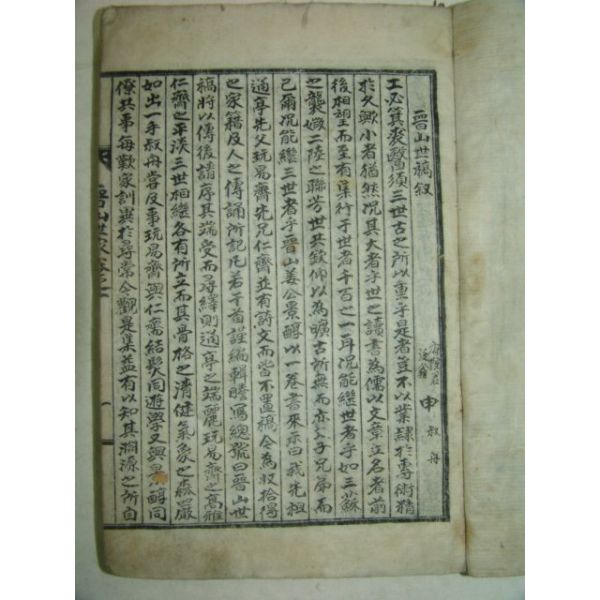 晋山世稿叙
申叔舟
工必箕裘醫須三世古之所以重乎是者豈不以業隷於專術精
於久歟小者猶然况其大者乎世之讀書為儒以文章立名者前
後相望而至有集行于世者千百之一耳况能繼世者乎如三蘇
之龔媺二陸之聯芳世共欽仰以為曠古所無而亦父子兄弟而
已爾况能繼三世者乎晋山姜公景醇以一卷書來示曰我先祖
通亭先父玩易齋先兄仁齋並有詩文而皆不置稿今為収拾得
之家籍及人之傳誦所記凡若干首謹編輯謄寫總號曰晋山世
稿將以傳後請序其端受而尋繹則通亭之端麗玩易齋之高雅
仁齋之平淡三世相繼各有所立而其骨格之清健氣象之森嚴
如出一手叔舟嘗及事玩易齋與仁齋結髮同遊學又與景醇同
僚共事每歎家訓異於尋常今觀是集益有以知其淵源之所自
晋山世稿卷之一